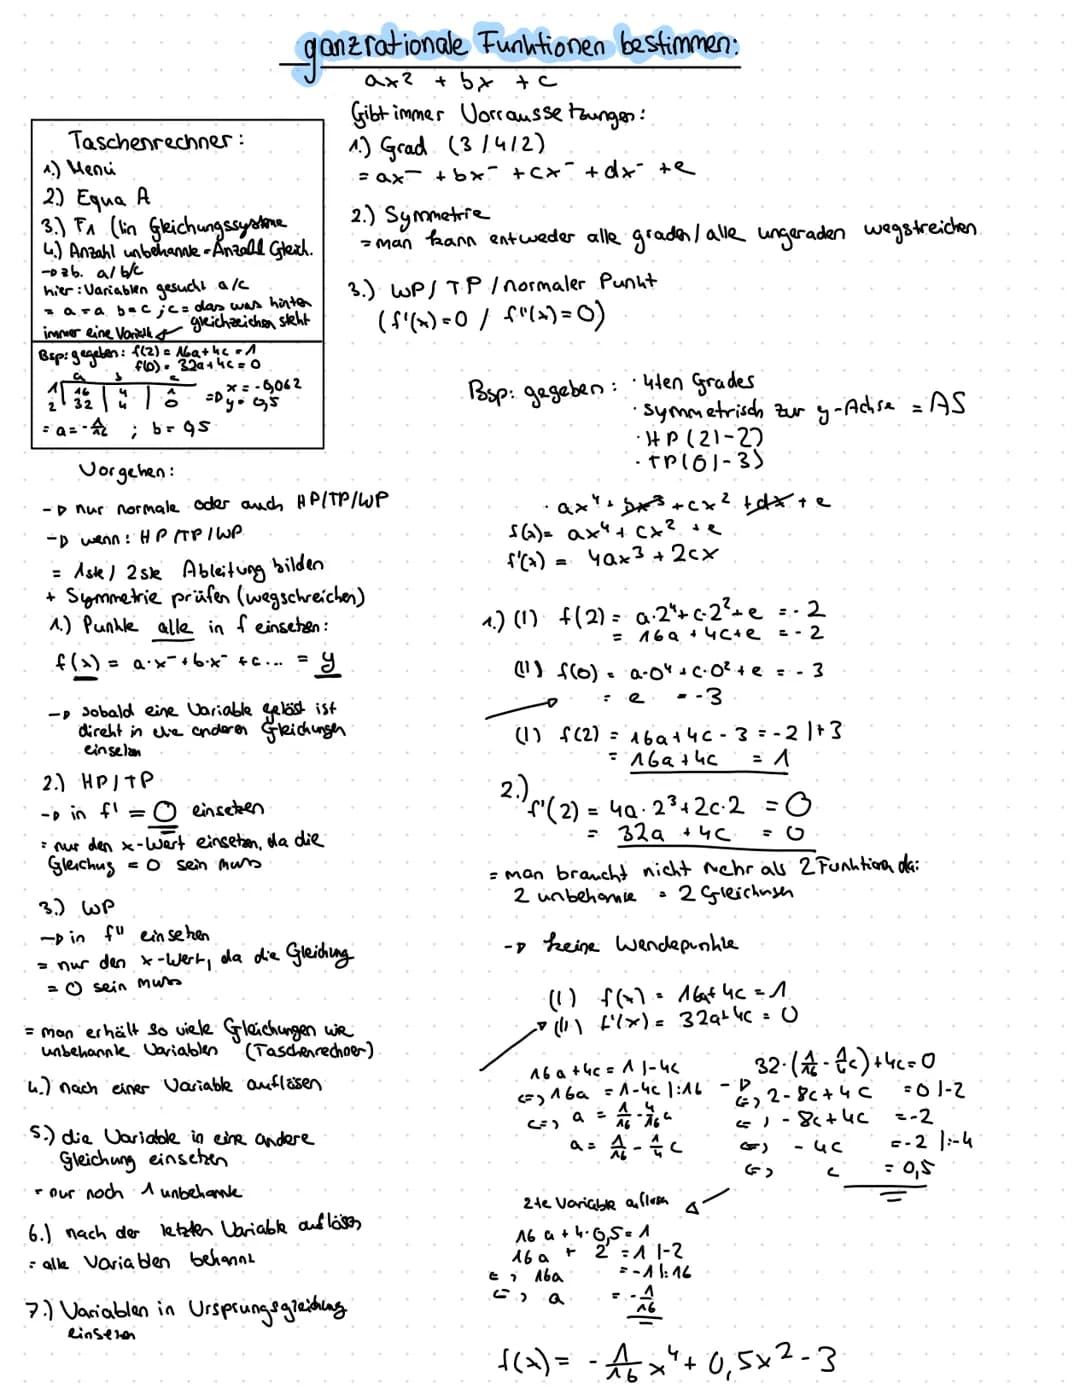 ganzrationale Funktionen bestimmen:
ax² + bx + c
Gibt immer Vorraussetzungen:
1.) Grad (3/4/2)
= ax⁻ + bx⁻ + cx⁻ + dx⁻ + e
2.) Symmetrie
= man kann entweder alle graden/alle ungeraden wegstreichen
3.) WP/TP/normaler Punkt
(f'(x)=0 / f''(x)=0)
Taschenrechner:
1.) Menü
2.) Equa A
3.) F1 (lin Gleichungssysteme
4.) Anzahl unbekannte = Anzahl Gleich.
→ zb. a/b/c
hier: Variablen gesucht a/c
= a=a b=c ; c= das was hinter
immer eine Variable gleichzeichen steht
Bsp: gegeben: f(2) = 16a+4c = 1
f(0) = 32a+4c = 0
a b c
1 16 | 4 | 1
2 32 | 4 | 0
=> x = -0,062
y = 0,5
= a = - ; b = 0,5
Vorgehen:
→ nur normale oder auch HP/TP/WP
→ wenn: HP/TP/WP
= 1ste / 2ste Ableitung bilden
+ Symmetrie prüfen (wegschreichen)
1.) Punkte alle in f einsetzen:
f(x) = a·x⁻ + b·x⁻ + c... = y
→ sobald eine Variable gelöst ist
direkt in die anderen Gleichungen
einsetzen
2.) HP/TP
→ in f' = 0 einsetzen
= nur den x-Wert einsetzen, da die
Gleichug = 0 sein muss
3.) WP
→ in f'' einsetzen
= nur den x-Wert, da die Gleichung
= 0 sein muss
= man erhält so viele Gleichungen wie
unbekannte Variablen (Taschenrechner)
4.) nach einer Variable auflösen
5.) die Variable in eine andere
Gleichung einsetzen
= nur noch 1 unbekannte
6.) nach der letzten Variable auflösen
= alle Variablen bekannt
7.) Variablen in Ursprungsgleichung
einsetzen
Bsp: gegeben: · 4ten Grades
· symmetrisch zur y-Achse = AS
· HP (2|-2)
· TP (0|-3)
· ax⁴ + bx³ + cx² + dx + e
f(x) = ax⁴ + cx² + e
f'(x) = 4ax³ + 2cx
1.) (I) f(2) = a·2⁴ + c·2² + e = -2
= 16a + 4c + e = -2
(II) f(0) = a·0⁴ + c·0² + e = -3
= e = -3
(I) f(2) = 16a + 4c - 3 = -2 |+3
= 16a + 4c = 1
2.) f'(2) = 4a·2³ + 2c·2 = 0
= 32a + 4c = 0
= man braucht nicht mehr als 2 Funktion da:
2 unbekannte = 2 Gleichungen
→ keine Wendepunkte
(I) f(x) = 16a + 4c = 1
(II) f'(x) = 32a + 4c = 0
16a + 4c = 1 |-4c
<=> 16a = 1-4c |:16
<=> a = 1/16 - 4/16 c
a = 1/16 - 1/4 c
32·(1/16 - 1/4 c) + 4c = 0
<=> 2 - 8c + 4c = 0 |-2
<=> - 8c + 4c = -2
<=> - 4c = -2 |:-4
<=> c = 0,5
2te Variable auflösen
16a + 4·0,5 = 1
16a + 2 = 1 |-2
<=> 16a = -1 |:16
<=> a = -1/16
f(x) = - 1/16 x⁴ + 0,5x² - 3